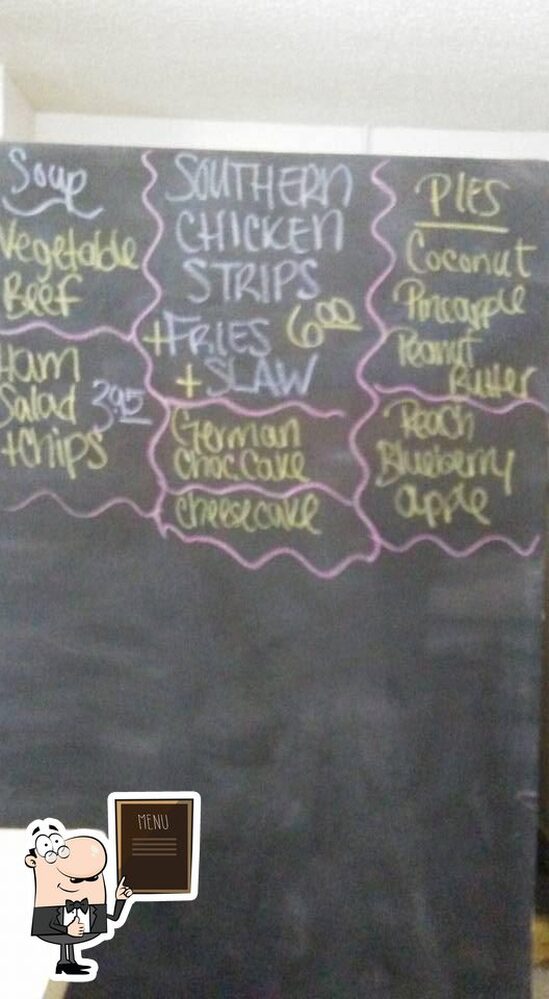 Soup
Vegetable
Beef
Ham
Salad 3.95
+Chips
SOUTHERN
CHICKEN
STRIPS
+FRIES 6.00
+ SLAW
German
Choc. Cake
Cheesecake
PIES
Coconut
Pineapple
Peanut
Butter
Peach
Blueberry
apple
MENU